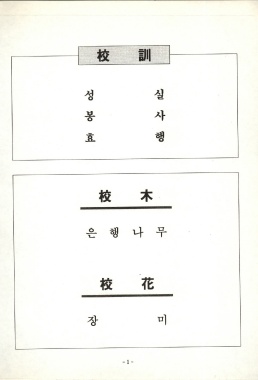 校 訓
성 실
봉 사
효 행
校 木
은 행 나 무
校 花
장 미
- 1 -